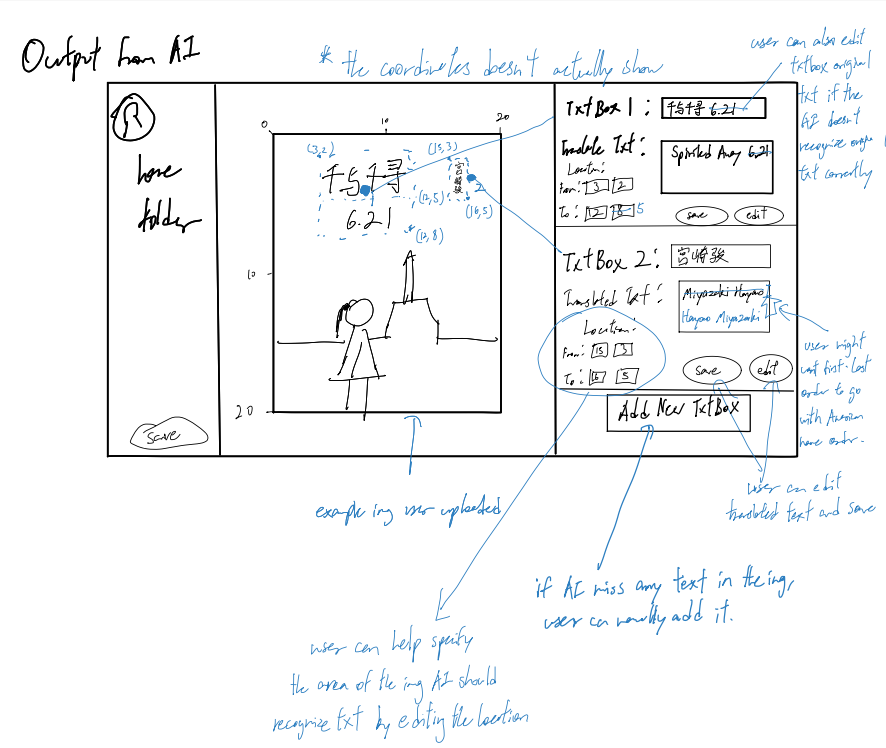 Output from AI
* the coordinates doesn't actually show
user can also edit
txtbox original
txt if the
AI doesn't
recognize
txt correctly
R
home
folder
save
0
10
20
10
20
(3,2)
(15,3)
千与千寻
宫崎骏
2
(12,5)
(16,5)
6.21
(12,8)
TxtBox 1:
千与千寻 6.21
Translate Txt:
Spirited Away 6.21
Location:
From: 3 2
To: 12 8 5
save
edit
TxtBox 2:
宫崎骏
Translated Txt:
Miyazaki Hayao
Hayao Miyazaki
Location:
From: 15 3
To: 16 5
save
edit
Add New TxtBox
user might
want first-last
order to go
with American
name order.
user can edit
translated text and save
example img user uploaded
if AI miss any text in the img,
user can manually add it.
user can help specify
the area of the img AI should
recognize txt by editing the location